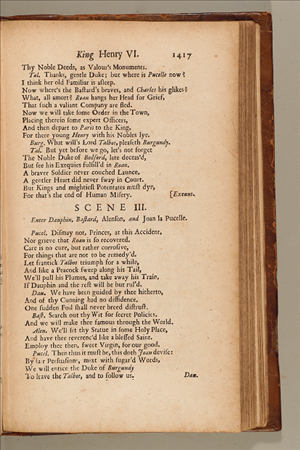 King Henry VI. 1417
Thy Noble Deeds, as Valour's Monuments.
Tal. Thanks, gentle Duke; but where is Pucelle now?
I think her old Familiar is asleep.
Now where's the Bastard's braves, and Charles his glikes?
What, all amort? Roan hangs her Head for Grief,
That such a valiant Company are fled.
Now we will take some Order in the Town,
Placing therein some expert Officers,
And then depart to Paris to the King,
For there young Henry with his Nobles lye.
Burg. What will's Lord Talbot, pleaseth Burgundy.
Tal. But yet before we go, let's not forget
The Noble Duke of Bedford, late deceas'd,
But see his Exequies fulfill'd in Roan,
A braver Soldier never couched Launce,
A gentler Heart did never sway in Court.
But Kings and mightiest Potentates must dye,
For that's the end of Human Misery. [Exeunt.
SCENE III.
Enter Dauphin, Bastard, Alenson, and Joan la Pucelle.
Pucel. Dismay not, Princes, at this Accident,
Nor grieve that Roan is so recovered.
Care is no cure, but rather corrosive,
For things that are not to be remedy'd.
Let frantick Talbot triumph for a while,
And like a Peacock sweep along his Tail,
We'll pull his Plumes, and take away his Train,
If Dauphin and the rest will be but rul'd.
Dau. We have been guided by thee hitherto,
And of thy Cunning had no diffidence.
One sudden Foil shall never breed distrust.
Bast. Search out thy Wit for secret Policies,
And we will make thee famous through the World.
Alen. We'll set thy Statue in some Holy Place,
And have thee reverenc'd like a blessed Saint.
Employ thee then, sweet Virgin, for our good.
Pucel. Then thus it must be, this doth Joan devise:
By fair Persuasions, mixt with sugar'd Words,
We will entice the Duke of Burgundy
To leave the Talbot, and to follow us.
Dau.